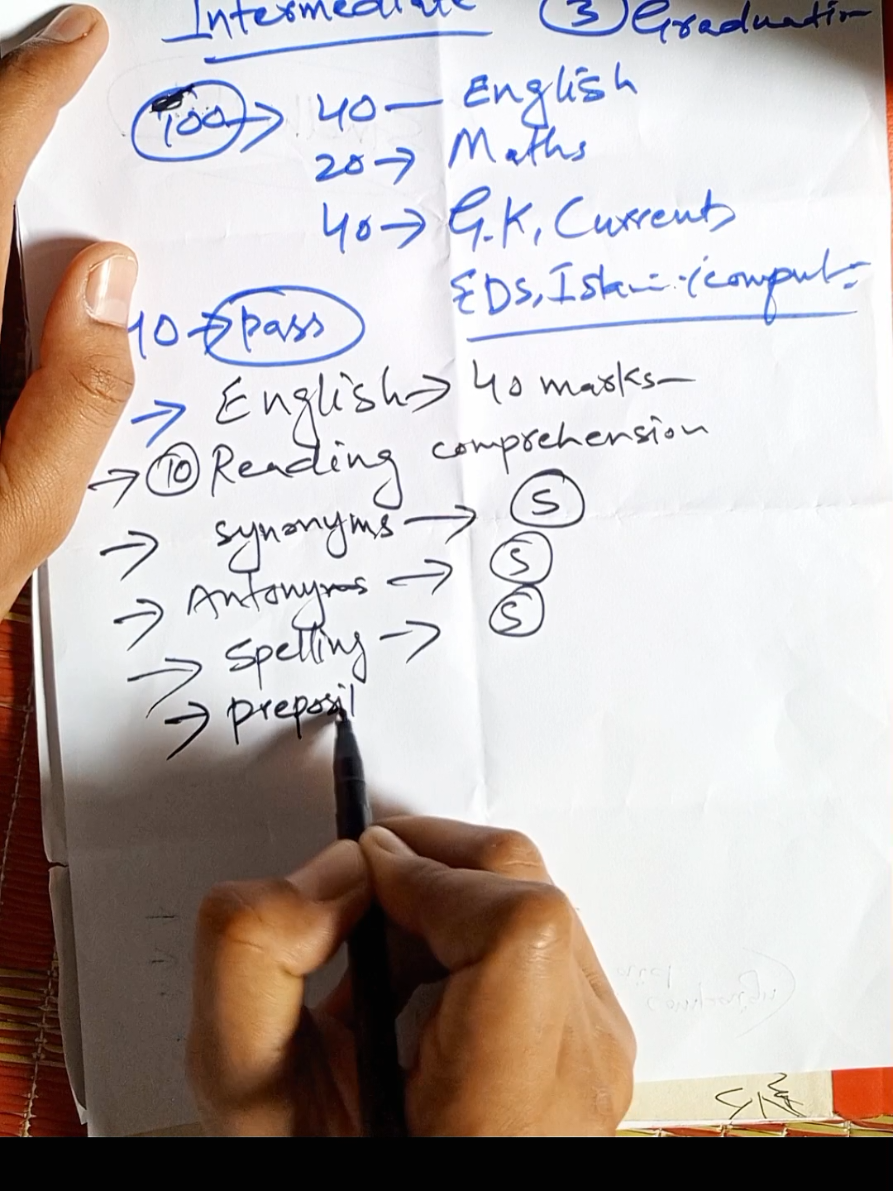 Intermediate ③ Graduation
100 → 40 — English
20 → Maths
40 → G.K, Currents
EDS, Islam-
40 → pass
→ English → 40 marks—
→ ⑩ Reading comprehension
→ synonyms → ⑤
→ Antonyms → ⑤
→ Spelling → ⑤
→ preposi